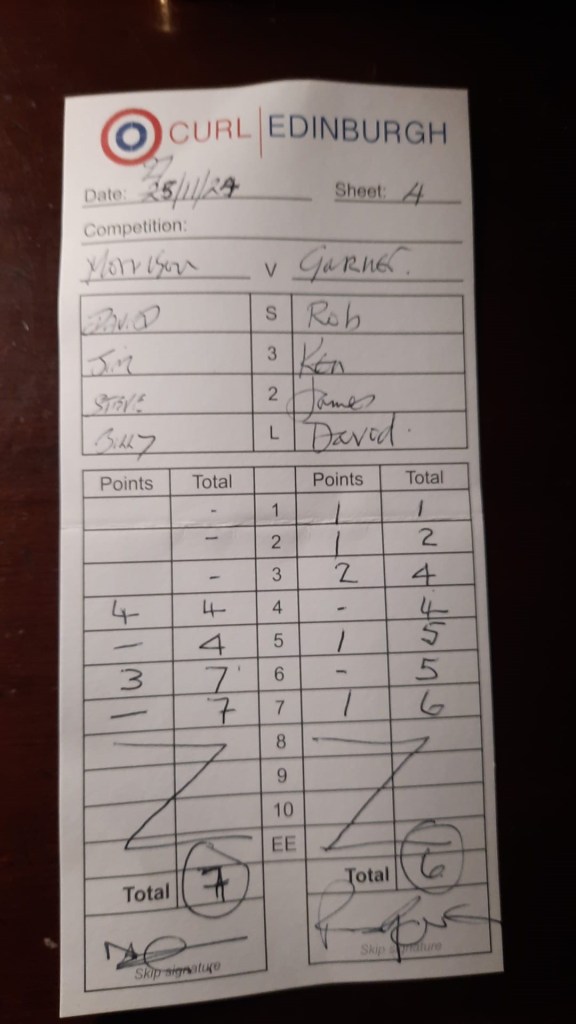 CURL EDINBURGH
27
Date: 25/11/24 Sheet: 4
Competition:
Morrison v GARNER.
DAVID S Rob
Jim 3 Ken
STEVE 2 James
BILLY L David.
Points Total Points Total
- 1 1 1
- 2 1 2
- 3 2 4
4 4 4 - 4
- 4 5 1 5
3 7 6 - 5
- 7 7 1 6
8
9
10
EE
Total 7 Total 6
Skip signature Skip signature